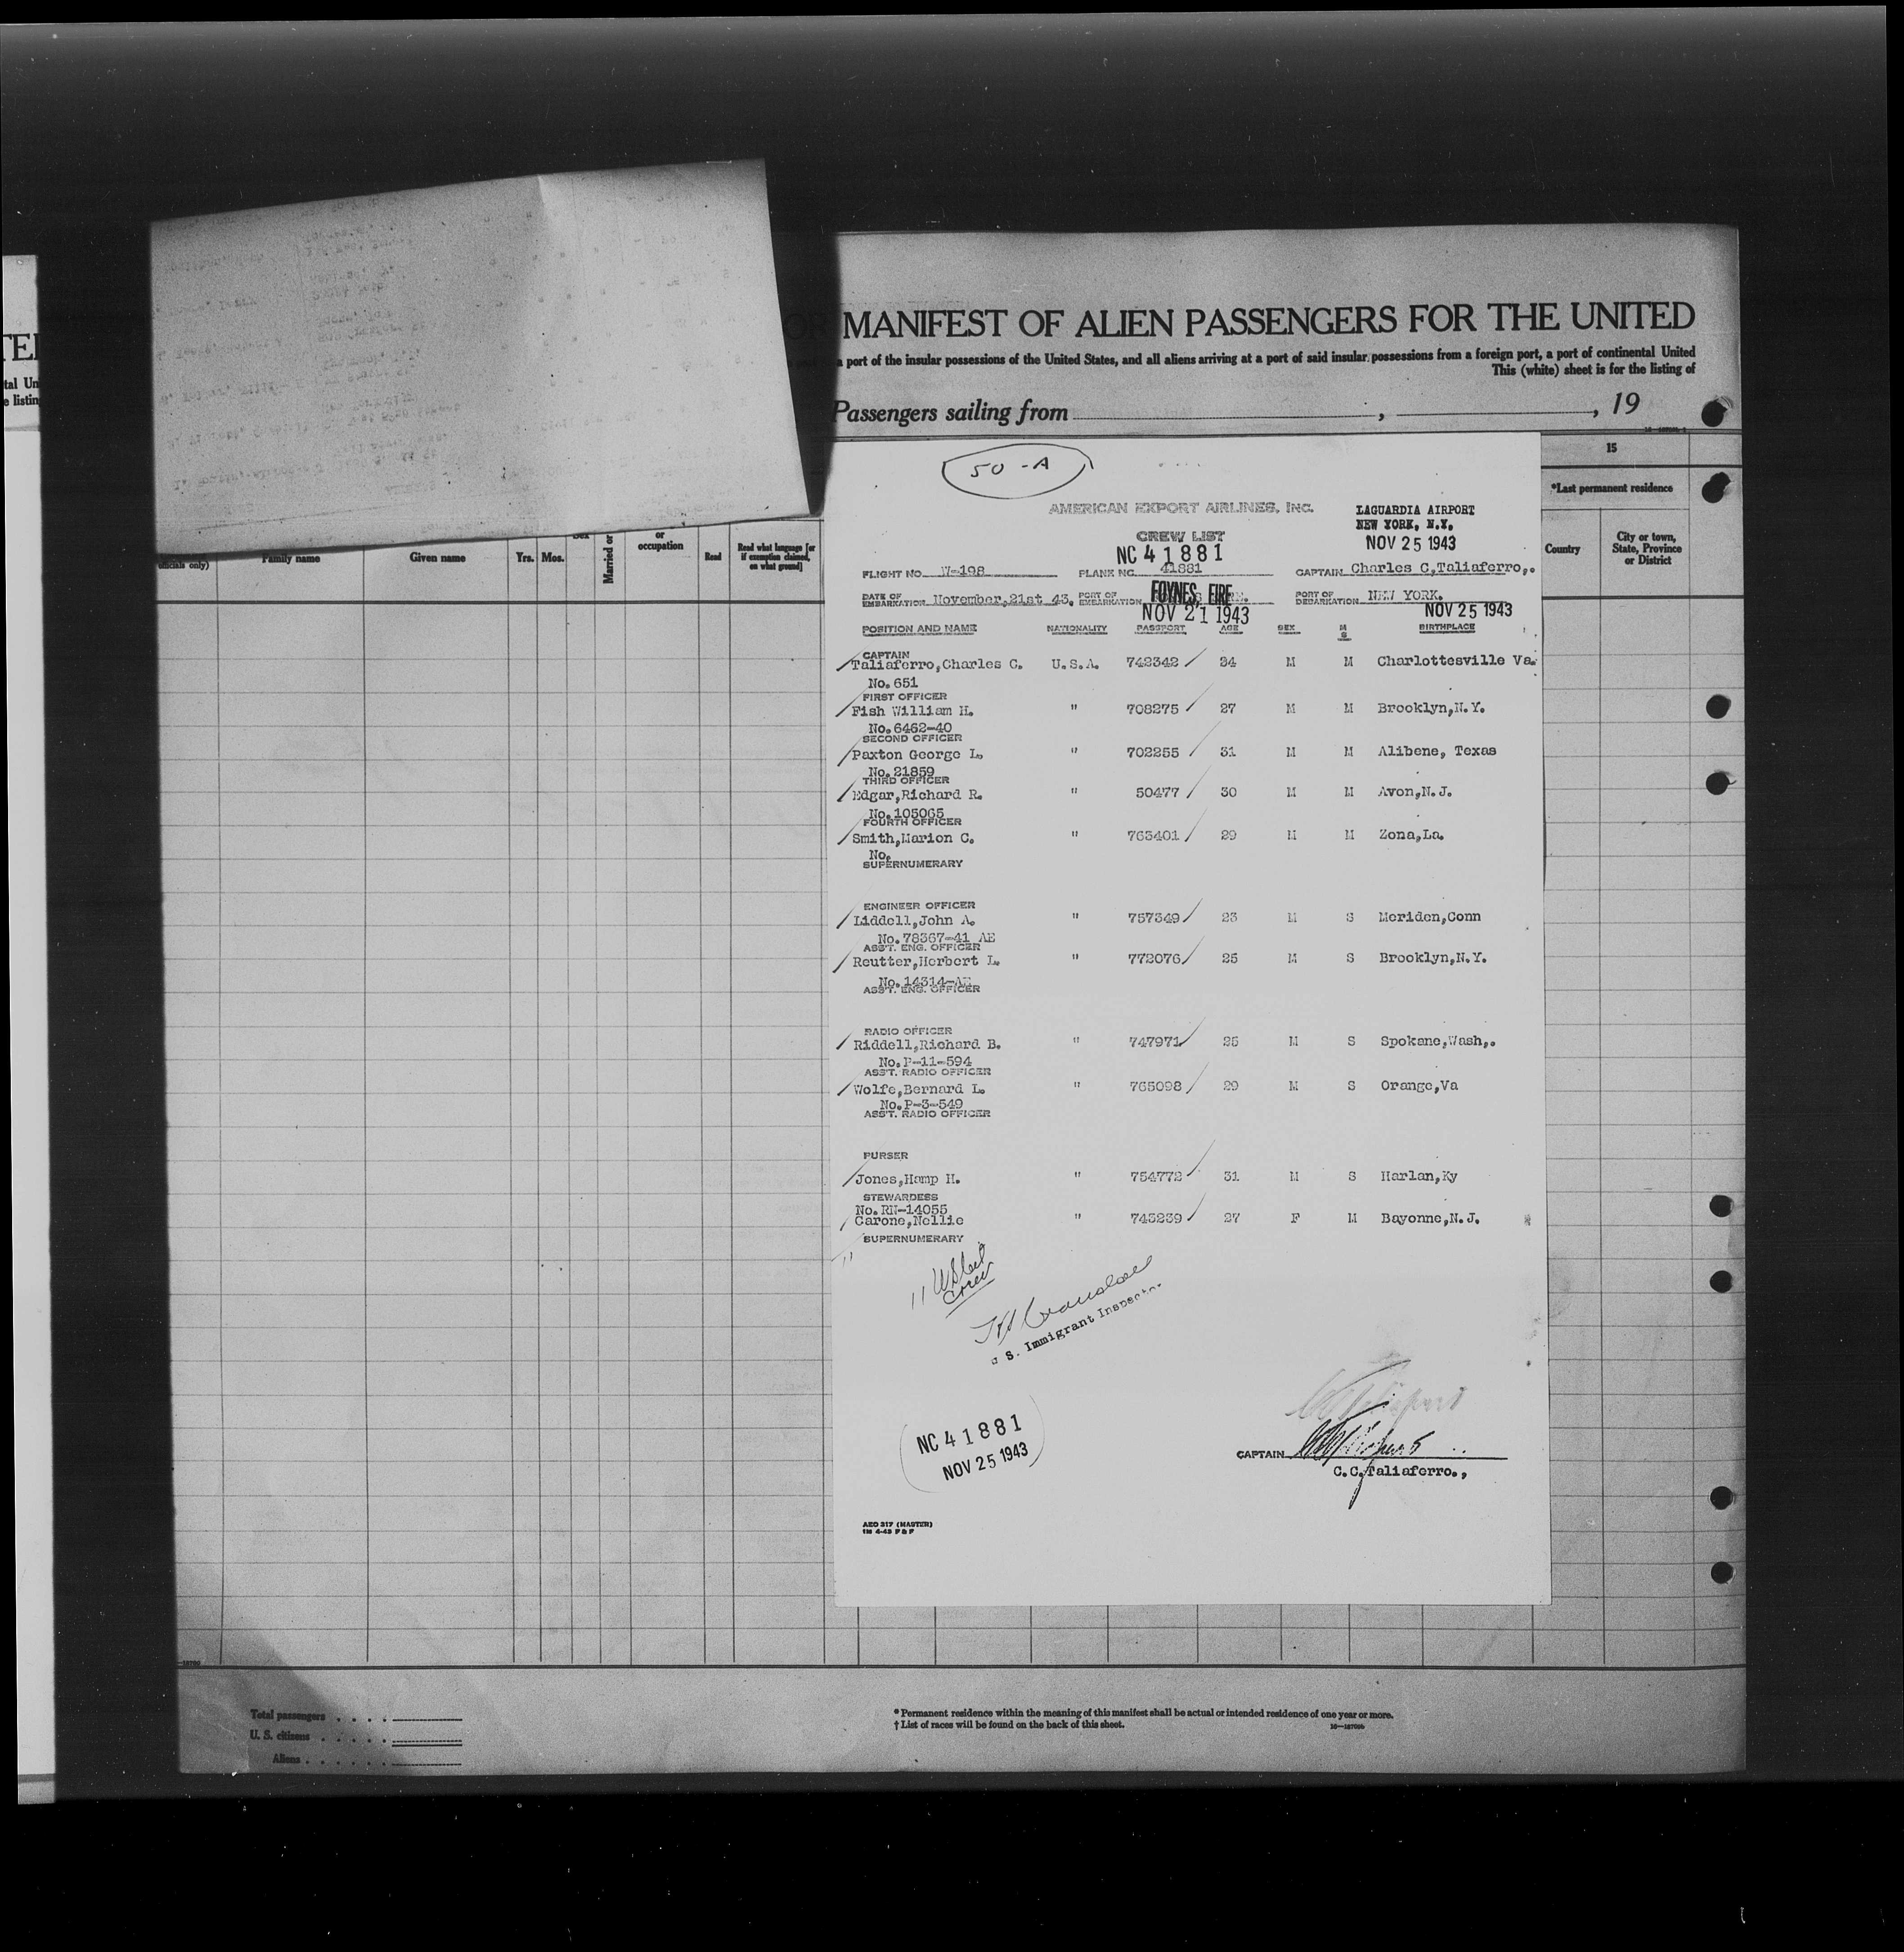 TEI
tal Un
e listin
OR MANIFEST OF ALIEN PASSENGERS FOR THE UNITED
a port of the insular possessions of the United States, and all aliens arriving at a port of said insular possessions from a foreign port, a port of continental United
This (white) sheet is for the listing of
Passengers sailing from , , 19
15
*Last permanent residence
Country
City or town, State, Province or District
officials only)
Family name
Given name
Yrs.
Mos.
Sex
Married or
or occupation
Read
Read what language [or if exemption claimed, on what ground]
50-A
AMERICAN EXPORT AIRLINES, INC.
LAGUARDIA AIRPORT
NEW YORK, N.Y.
NOV 25 1943
CREW LIST
NC 41881
FLIGHT NO. W-198 PLANE NO. 41881 CAPTAIN Charles C,Taliaferro,.
DATE OF EMBARKATION November,21st 43. PORT OF EMBARKATION FOYNES, EIRE. PORT OF DEBARKATION NEW YORK.
NOV 21 1943
NOV 25 1943
POSITION AND NAME NATIONALITY PASSPORT AGE SEX M S BIRTHPLACE
CAPTAIN
Taliaferro,Charles C. U.S.A. 742342 34 M M Charlottesville Va.
No. 651
FIRST OFFICER
Fish William H. " 708275 27 M M Brooklyn,N.Y.
No. 6462-40
SECOND OFFICER
Paxton George L. " 702255 31 M M Alibene, Texas
No. 21859
THIRD OFFICER
Edgar,Richard R. " 50477 30 M M Avon,N.J.
No. 105065
FOURTH OFFICER
Smith,Marion C. " 763401 29 M M Zona,La.
No.
SUPERNUMERARY
ENGINEER OFFICER
Liddell,John A. " 757349 23 M S Meriden,Conn
No. 78367-41 AE
ASS'T. ENG. OFFICER
Reutter,Herbert L. " 772076 25 M S Brooklyn,N.Y.
No. 14314-AE
ASS'T. ENG. OFFICER
RADIO OFFICER
Riddell,Richard B. " 747971 25 M S Spokane,Wash,.
No. P-11-594
ASS'T. RADIO OFFICER
Wolfe,Bernard L. " 765098 29 M S Orange,Va
No. P-3-549
ASS'T. RADIO OFFICER
PURSER
Jones,Hamp H. " 754772 31 M S Harlan,Ky
STEWARDESS
No. RN-14055
Carone,Nellie " 743239 27 F M Bayonne,N.J.
SUPERNUMERARY
11
Crew
S. Immigrant Inspector
NC 41881
NOV 25 1943
CAPTAIN
C.C.Taliaferro.,
AEO 317 (MASTER)
1M 4-43 P & P
Total passengers
U. S. citizens
Aliens
* Permanent residence within the meaning of this manifest shall be actual or intended residence of one year or more.
† List of races will be found on the back of this sheet.